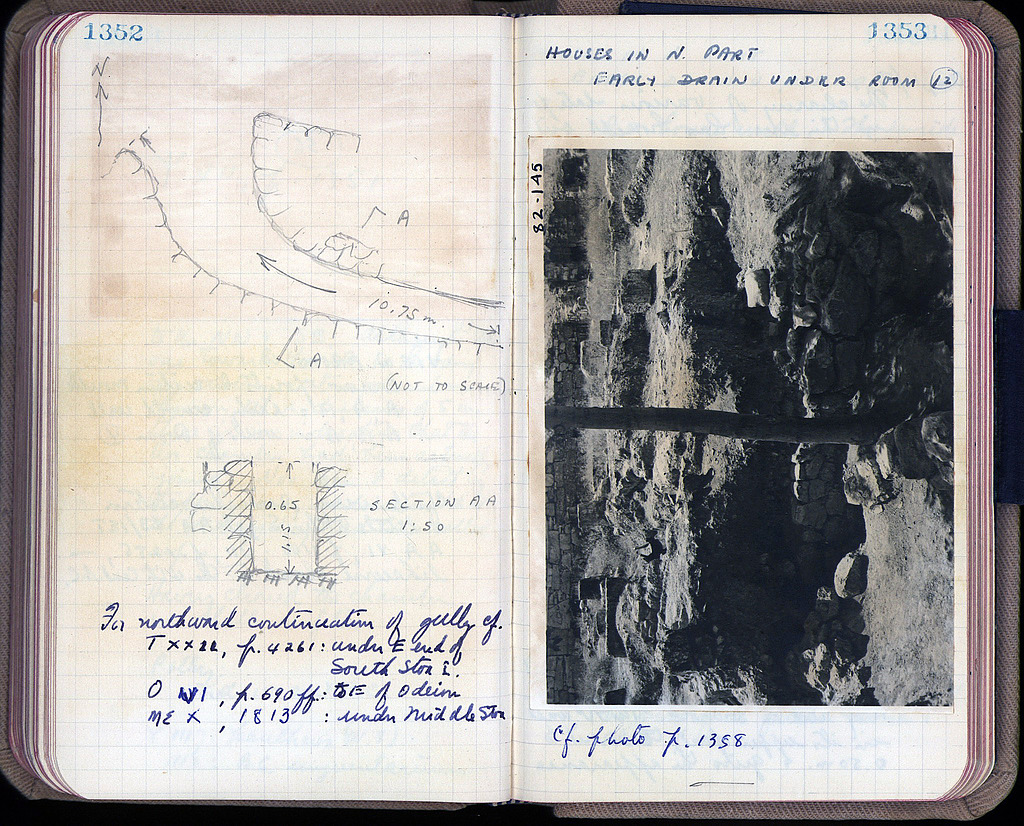 1352
N.
A
10.75 m.
A
(NOT TO SCALE)
0.65
1.15
SECTION AA
1:50
For northward continuation of gully cf.
T XXII, p. 4261: under E end of
South Stoa I.
O VI, p. 690 ff: to E of Odeion
ME X, 1813 : under Middle Stoa
1353
HOUSES IN N. PART
EARLY DRAIN UNDER ROOM 12
82-145
Cf. photo p. 1358